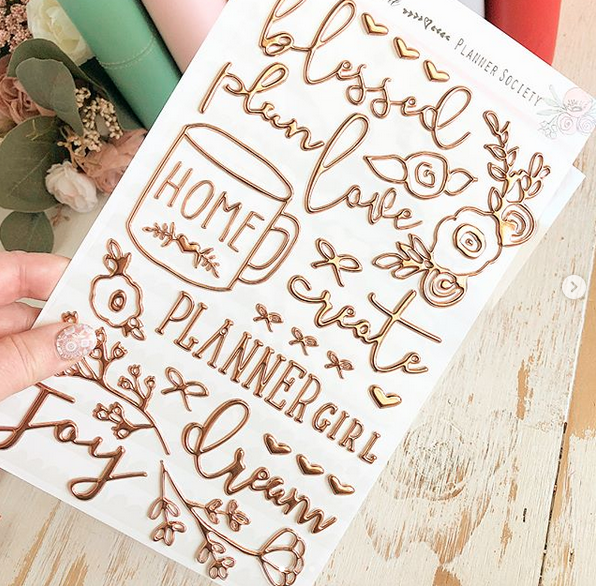 PLANNER SOCIETY
blessed
plan
love
HOME
create
PLANNERGIRL
Joy
dream